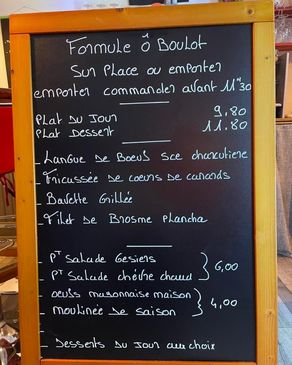 Formule Ô Boulot
Sur Place ou emporter
emporter commander avant 11"30
Plat du Jour 9,80
Plat Dessert 11.80
_ Langue de Boeuf Sce charcutiere
_ Fricassée de coeurs de canards
_ Bavette Grillée
_ Filet de Brosme Plancha
_ PT Salade Gesiers
_ PT Salade chèvre chaud } 6,00
_ oeufs mayonnaise maison
_ moulinée de saison } 4,00
_ Desserts du Jour au choix